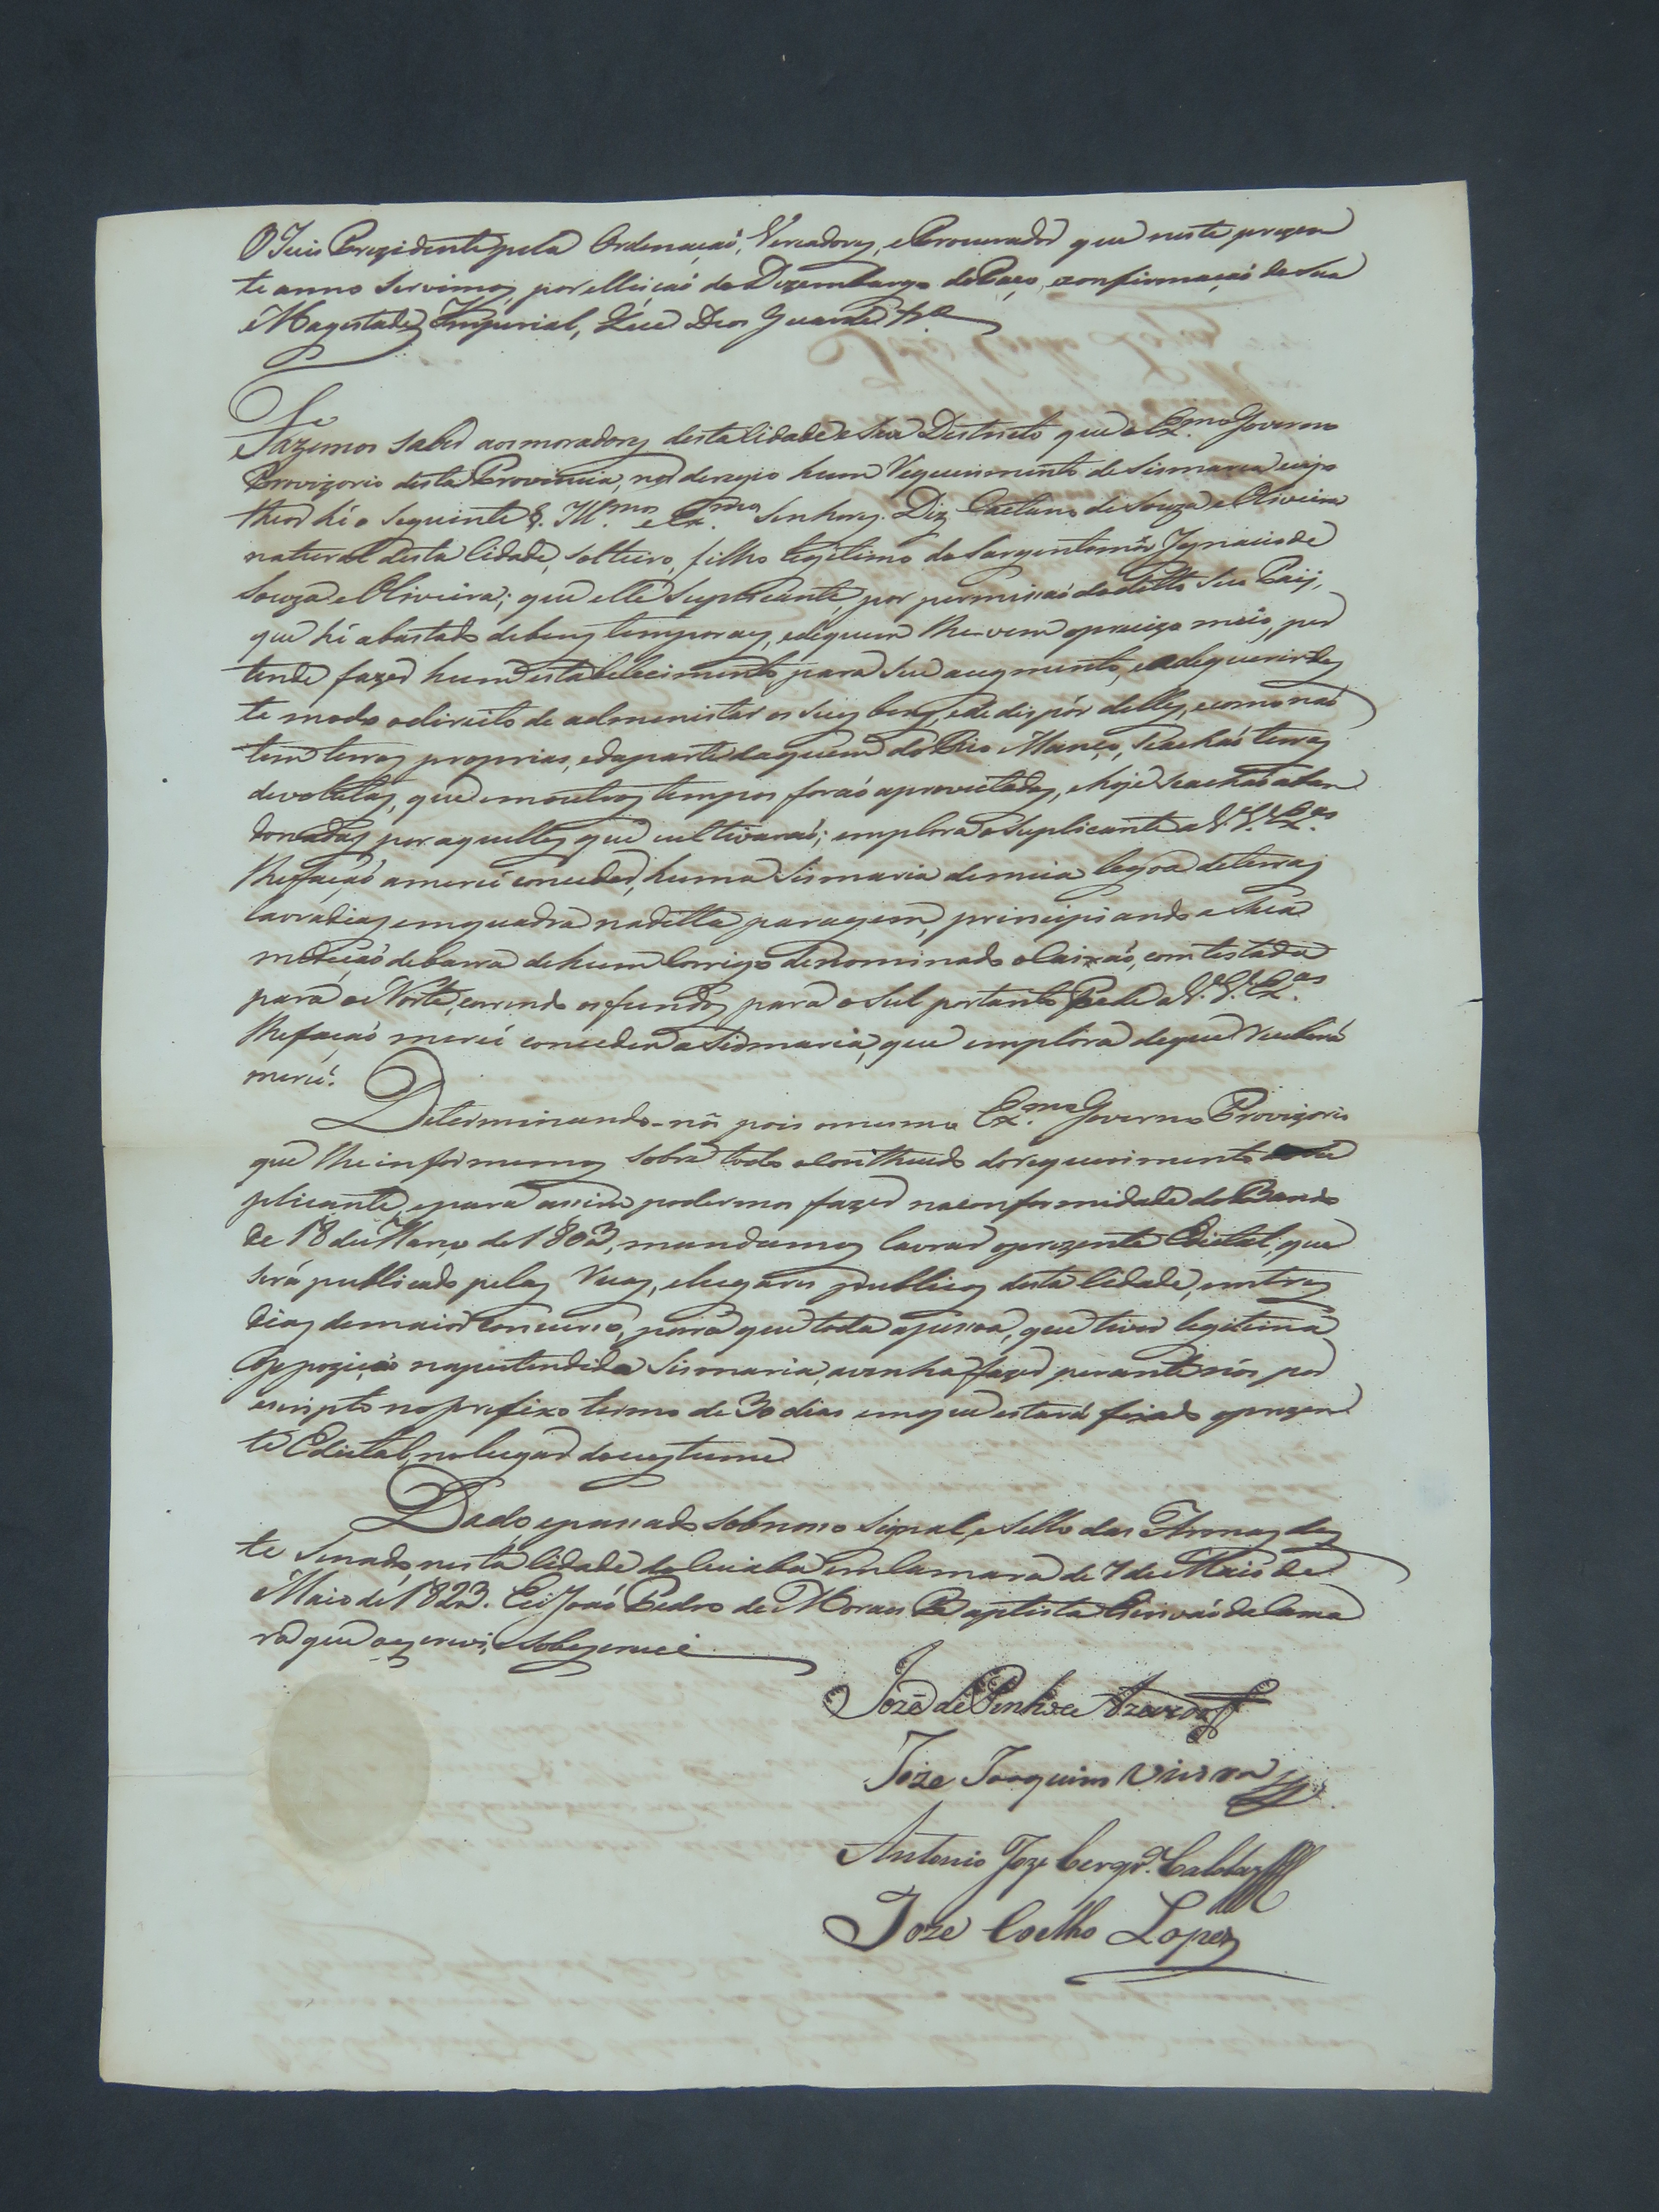 O Juis Prezidente pela Ordenaçaõ, Vereadores, e Procurador que neste prezen
te anno servimos, por elleiçaõ do Dezembargo do Paço, confirmaçaõ de Sua
Magestade Imperial, que Deos Guarde &ª
Fazemos saber aos moradores desta Cidade e Seu Destricto que o Ex.mo Governo
Provizorio desta Provincia, nos deregio hum Requerimento de Sismaria cujo
theor hé o Seguinte Ill.mos e Ex.mos Senhores. Diz Caetano de Souza e Oliveira
natural desta Cidade, Solteiro, filho legitimo do Sargentomór Ignacio de
Souza e Oliveira; que elle Suplicante, por permissaõ do ditto Seu Paij,
que hé abastado de bens temporaes, e de quem lhe vem o precizo meio, per
tende fazer hum estabelecimento para seu augmento, e adequerir des
te modo o direito de admenistar os seus bens, e de dispór delles, e como naõ
tem terras proprias, e da parte daquem do Rio Manço, se achaõ terras
devolutas, que em outros tempos foraõ aproveitadas, e hoje se achaõ aban
donadas por aquelles que cultivaraõ; emplora o Suplicante a V. V. Ex.as
lhe façaõ a mercé conceder, huma Sismaria de meia legoa de terras
lavradias em quadra na ditta paragem, principiando a Sua
mediçaõ da barra de hum Corrigo denominado o Caixaõ, com testada
para o Norte, correndo os fundos para o Sul portanto Pede a V. V. Ex.as
lhe façaõ mercé conceder a Sismaria, que emplóra de que Receberá
mercé.
Determinando-nós pois o mesmo Ex.mo Governo Provizorio
que lhe informemos sobre todo o conthiudo do requerimento do Su
plicante, e para assim podermos fazer na conformidade do Bando
de 18 de Março de 1803, mandamos lavrar o prezente Edictal, que
será publicado pelas Ruas, e lugares publicos desta Cidade, em tres
dias de maior concurso, para que toda a pessoa, que tiver legitima
Oppoziçaõ na pertendida Sismaria, a venha fazer perante nós por
escripto no prefixo termo de 30 dias em que estará fixado o prezen
te Edictal, no lugar do custume
Dado e passado sob nosso signal, e Sello das Armas des
te Senado, nesta Cidade do Cuiabá em Camara de 7 de Maio de
Maio de 1823. Eu Joaõ Pedro de Moraes Baptista Escrivaõ da Cama
ra que o escrevi, e sobescrevi
Jozé de Pinho e Azevedo
Joze Joaquim Vieira
Antonio Joze Cerqr.ª Caldas
Joze Coelho Lopes